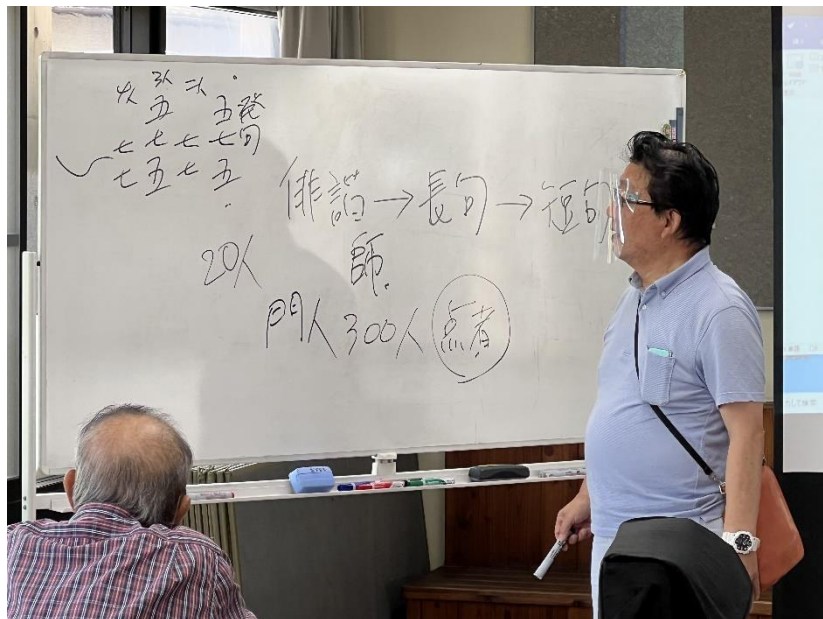 五 五 発
七 七 七 七 句
七 五 七 五
俳諧→長句→短句
20人
師
門人300人 点者